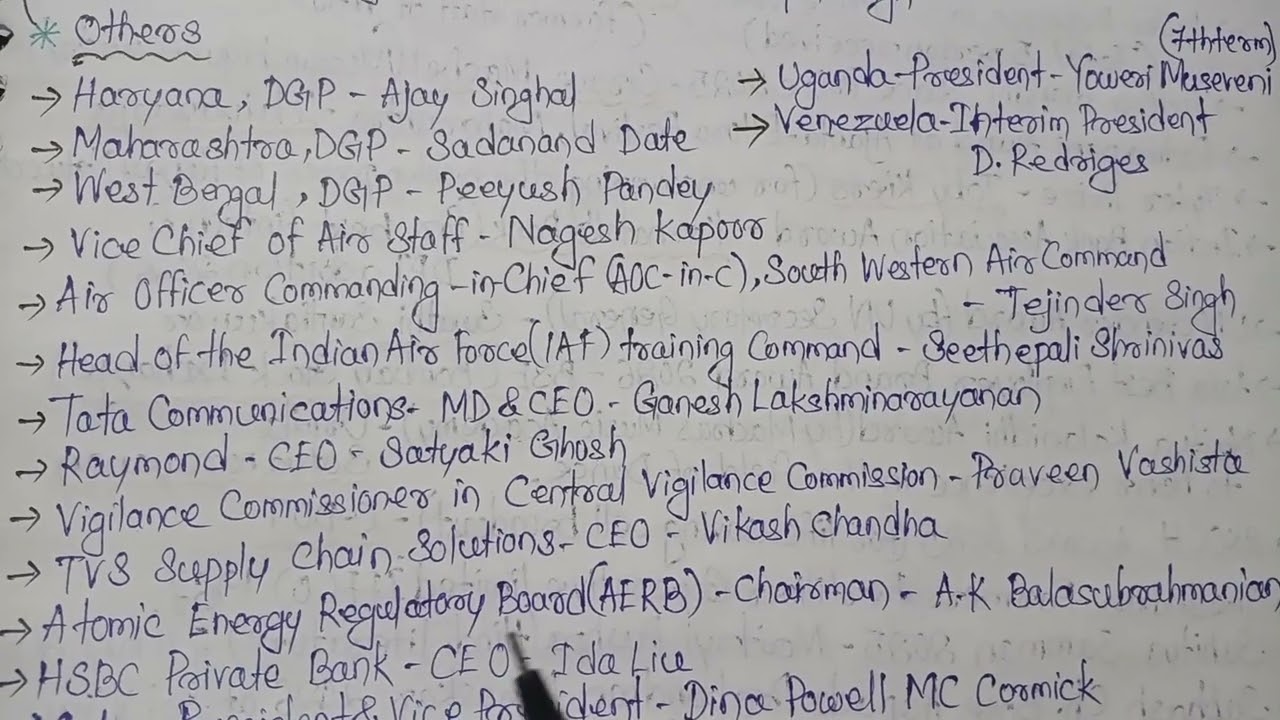 * Others
→ Haryana, DGP - Ajay Singhal
→ Maharashtra, DGP - Sadanand Date
→ West Bengal, DGP - Peeyush Pandey
→ Vice Chief of Air Staff - Nagesh Kapoor
(7th term)
→ Uganda - President - Yoweri Musereni
→ Venezuela - Interim President
D. Redriges
→ Air Officer Commanding-in-Chief (AOC-in-C), South Western Air Command
- Tejinder Singh
→ Head of the Indian Air Force (IAF) training Command - Seethepali Shrinivas
→ Tata Communications - MD & CEO - Ganesh Lakshminarayanan
→ Raymond - CEO - Satyaki Ghosh
→ Vigilance Commissioner in Central Vigilance Commission - Praveen Vashista
→ TVS Supply Chain Solutions - CEO - Vikash Chandha
→ Atomic Energy Regulatory Board (AERB) - Chairman - A.K Balasubrahmanian
→ HSBC Private Bank - CEO - Ida Liu
President & Vice President - Dina Powell MC Cormick